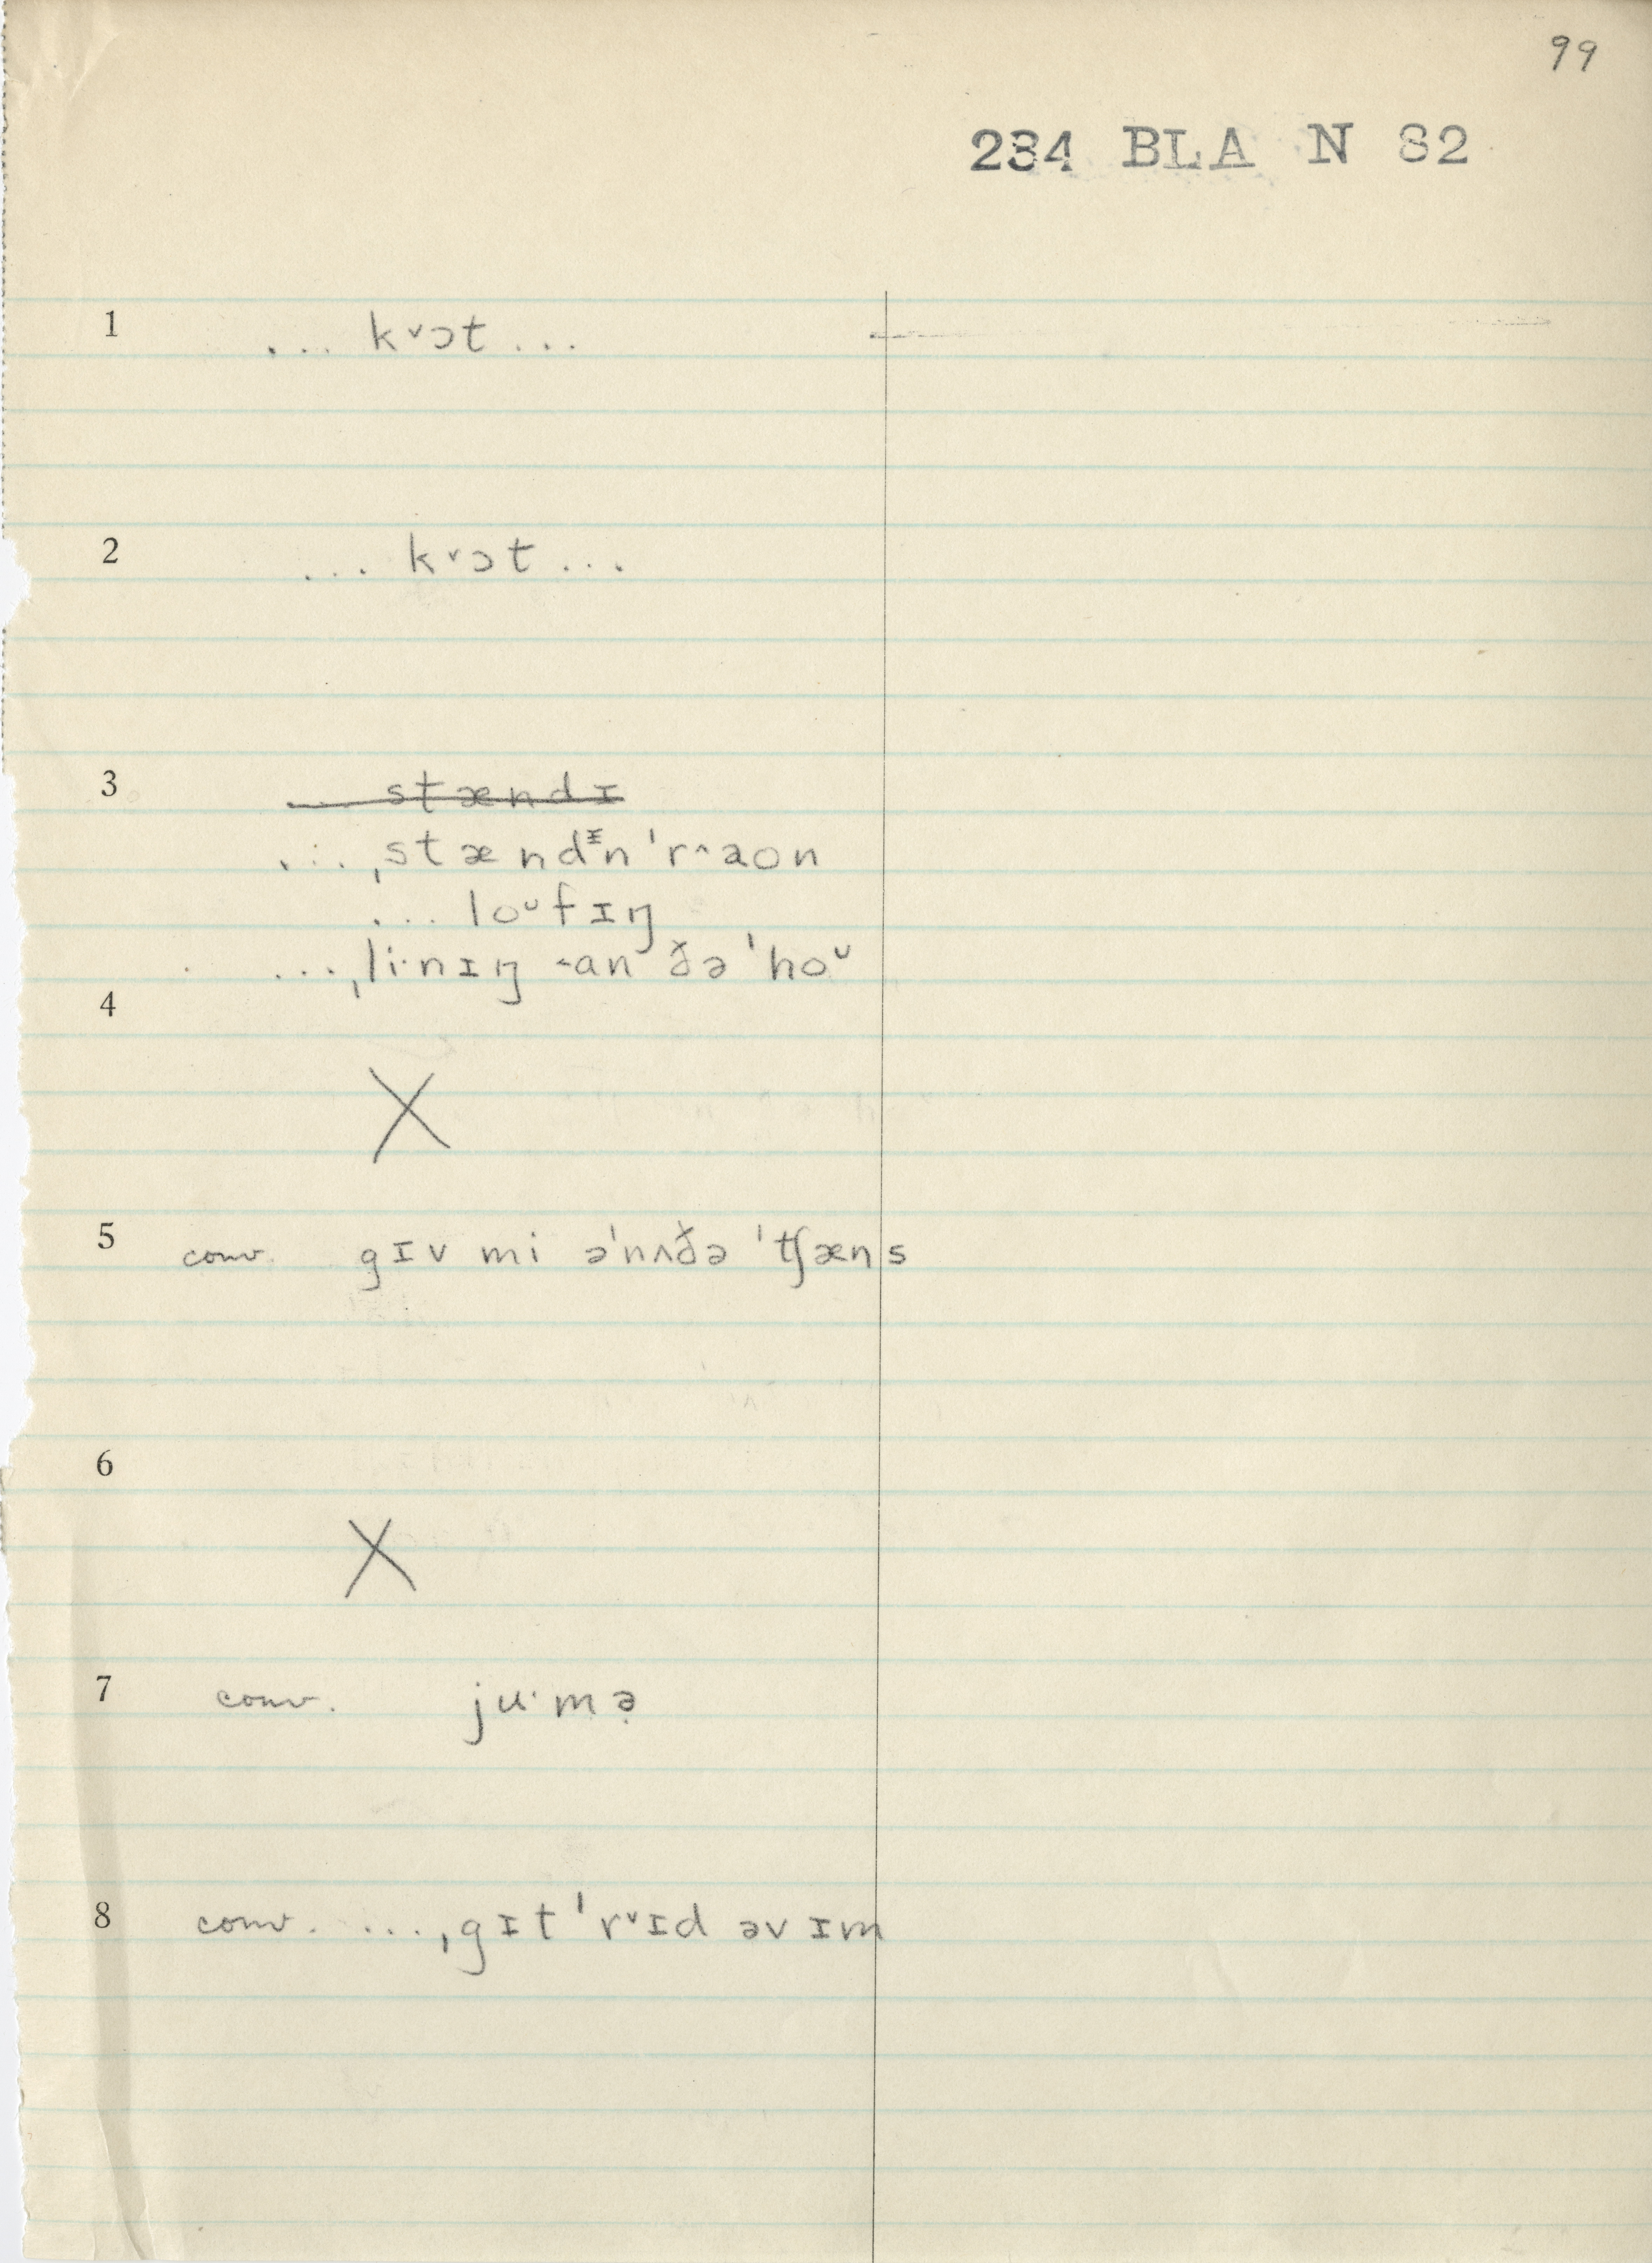 99
284 BLA N 82
1 ... k˅ɔt ...
2 ... k˅ɔt ...
3 ... stændɪ
... ˌstændᵻn ˈr˄aon
... loᵁfɪŋ
... ˌli·nɪŋ ˂an ðə ˈhoᵁ
4
X
5 conv. gɪv mi əˈnʌðə ˈtʃæns
6
X
7 conv. ju·mə̣
8 conv. ... ˌgɪt ˈr˅ɪd əv ɪm